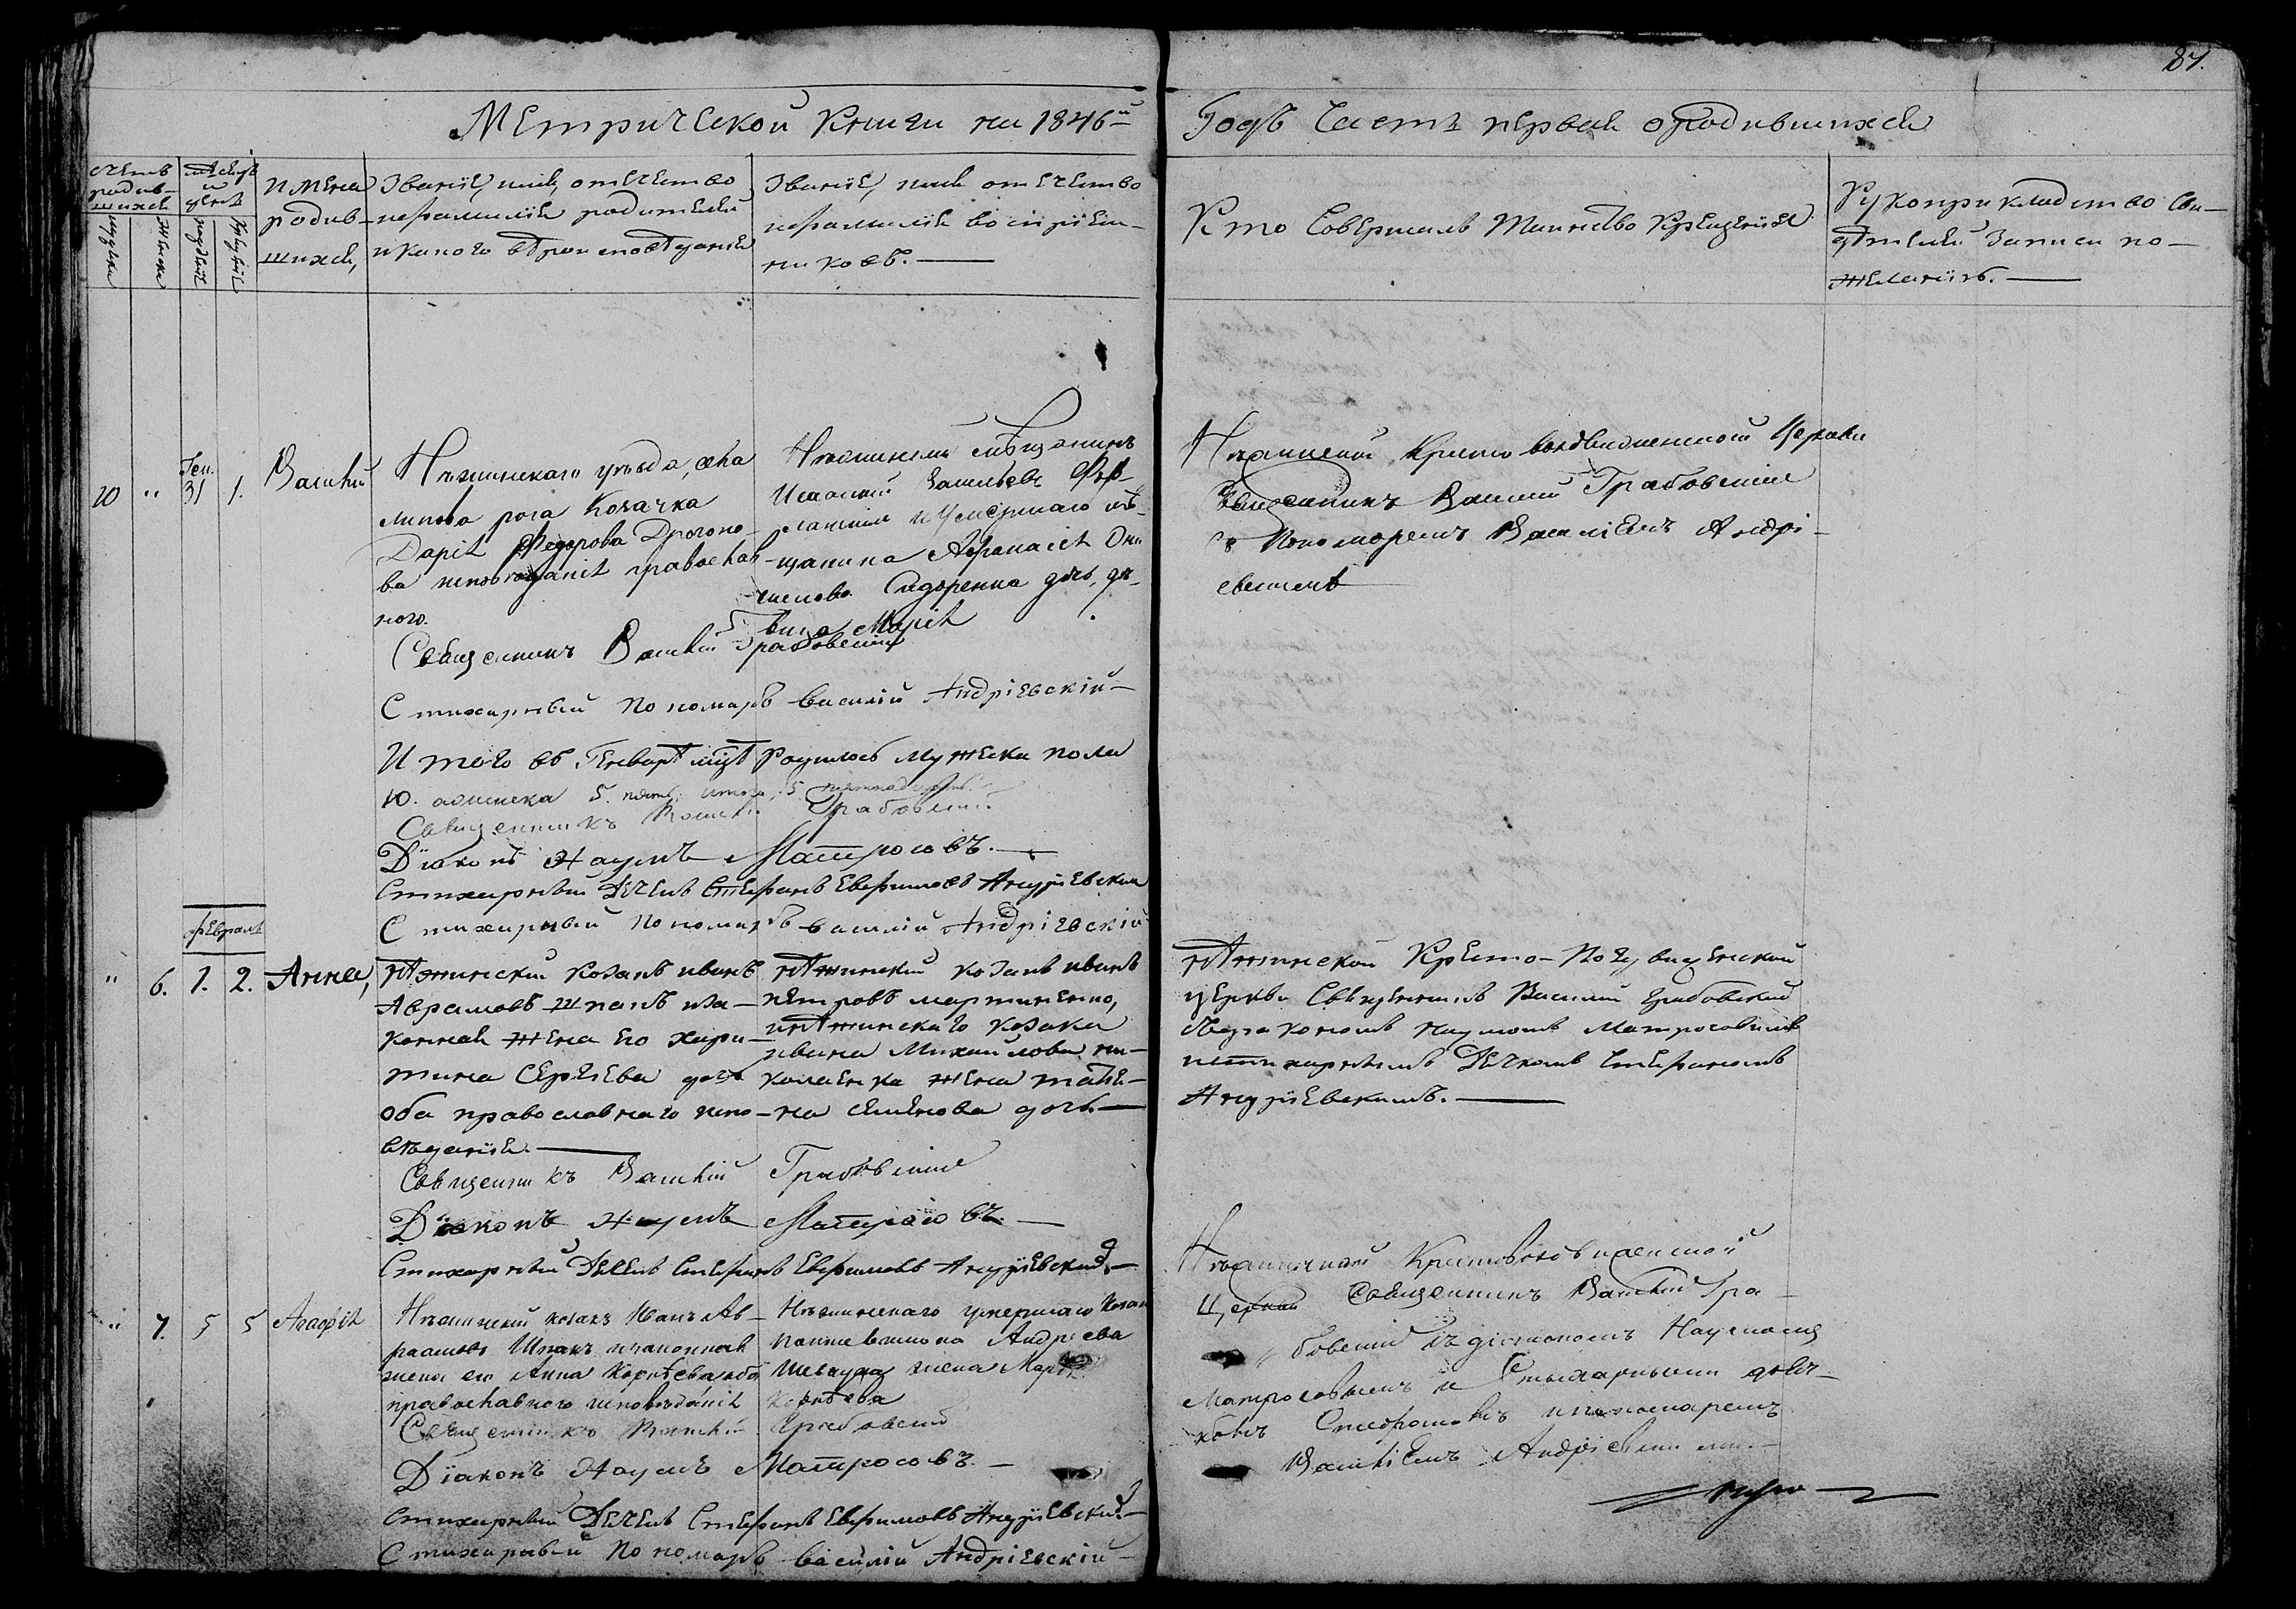 87.
Метрической Книги на 1846й Годъ Часть первая о родившихся
Счетъ родившихся
Мѣсяцъ и день
Имена родившихся,
Званіе, имя, отечество
и фамилія родителей
и какого вѣроисповѣданія
Званіе, имя отечество
и фамилія воспріем-
никовъ.
Кто совершалъ Таинство Крещенія
Рукоприкладство сви-
дѣтелей записи по
желанію.
мужеска
женска
рожденія
крещенія
10 " Ген. 31 1. Василій
Нѣжинскаго уѣзда, села
липова рога Козачка
Дарія Федорова
ва исповѣданія православ-
ного.
Нѣжинскій мѣщанинъ
Васильевъ
и умершаго мѣ-
щанина Афанасія
Сидоренка дочь, дѣ-
вица Марія
Нѣжинской Крестовоздвиженской Церкви
Священникъ Василій Грабовскій
съ Пономаремъ Василіемъ Андрі-
евскимъ
Священникъ Василій Грабовскій
Стихарный Пономарь Василій Андріевскій
Итого въ Генварѣ мцѣ родилось мужеска пола
10. а женска 5. пять. итого 15. пятнадцать.
Священникъ Василій Грабовскій
Діаконъ Наумъ Матросовъ.
Стихарный Дячекъ Стефанъ Евфимовъ Андріевскій
Стихарный Пономарь Василій Андріевскій
Февраль
" 6. 1. 2. Анна,
Нѣжинскій козакъ иванъ
Аврамовъ Шпакъ иза-
конная жена его хари-
тина Сергѣева дочь
оба православнаго испо-
вѣданія.
Нѣжинскій козакъ иванъ
петровъ мартиненко,
инѣжинскаго козака
ивана Михайлова ни-
колаенка жена татія-
на семенова дочь.
Нѣжинской Кресто-Воздвиженской
церкви Священникъ Василій Грабовский
съ діакономъ наумомъ Матросовымъ
истихарнымъ Дячкомъ Стефаномъ
Андріевскимъ.
Священникъ Василій Грабовскій
Діаконъ Наумъ Матросовъ.
Стихарный Дячекъ Стефанъ Евфимовъ Андріевский
" 7. 5 5 Агафія
Нѣжинскій козакъ Иванъ Ав-
раамовъ Шпакъ изаконная
жена его Анна Корнѣева оба
православного исповѣданія
Нѣжинскаго умершаго Козака
Андреева
жена
Корнѣева
Нѣжинской Крестовоздвиженской
Церкви Священникъ Василій Гра-
бовскій съ діакономъ Наумомъ
Матросовымъ и Стихарнымъ дьяч-
комъ Стефаномъ и пономаремъ
Василіемъ Андріевскими.
Священникъ Василій Грабовский
Діаконъ Наумъ Матросовъ.
Стихарный Дячекъ Стефанъ Евфимовъ Андріевский
Стихарный Пономарь Василій Андріевскій